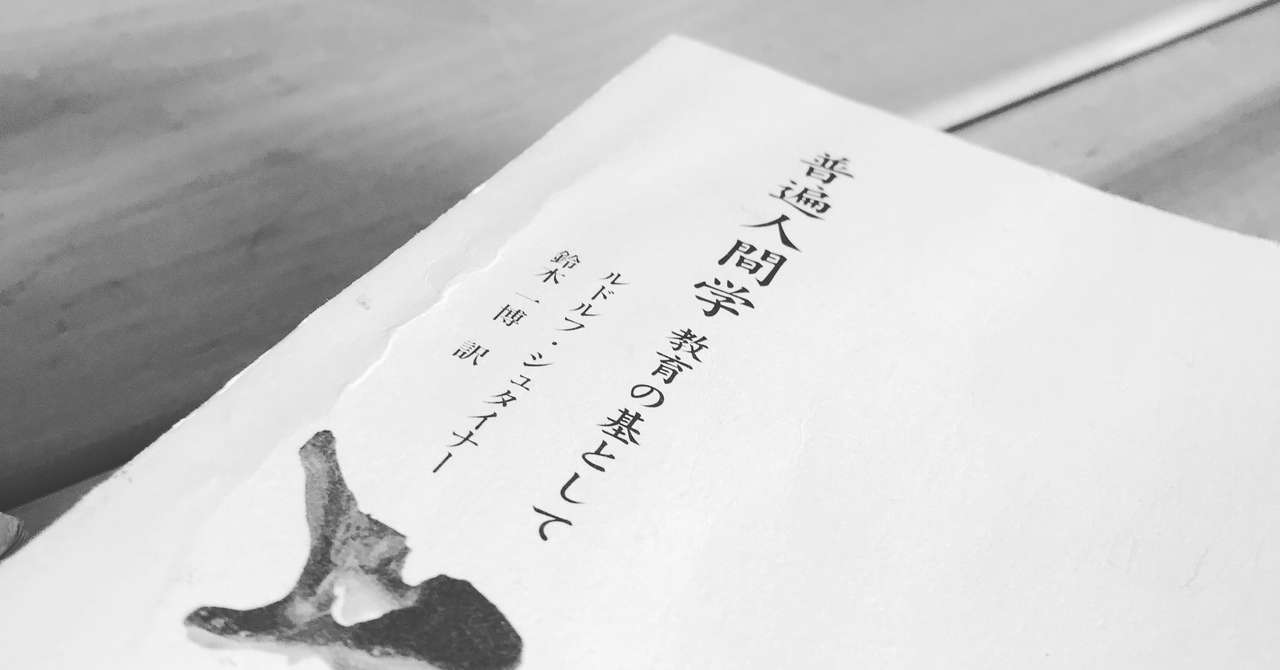 普遍人間学 教育の基として
ルドルフ・シュタイナー
鈴木一博 訳